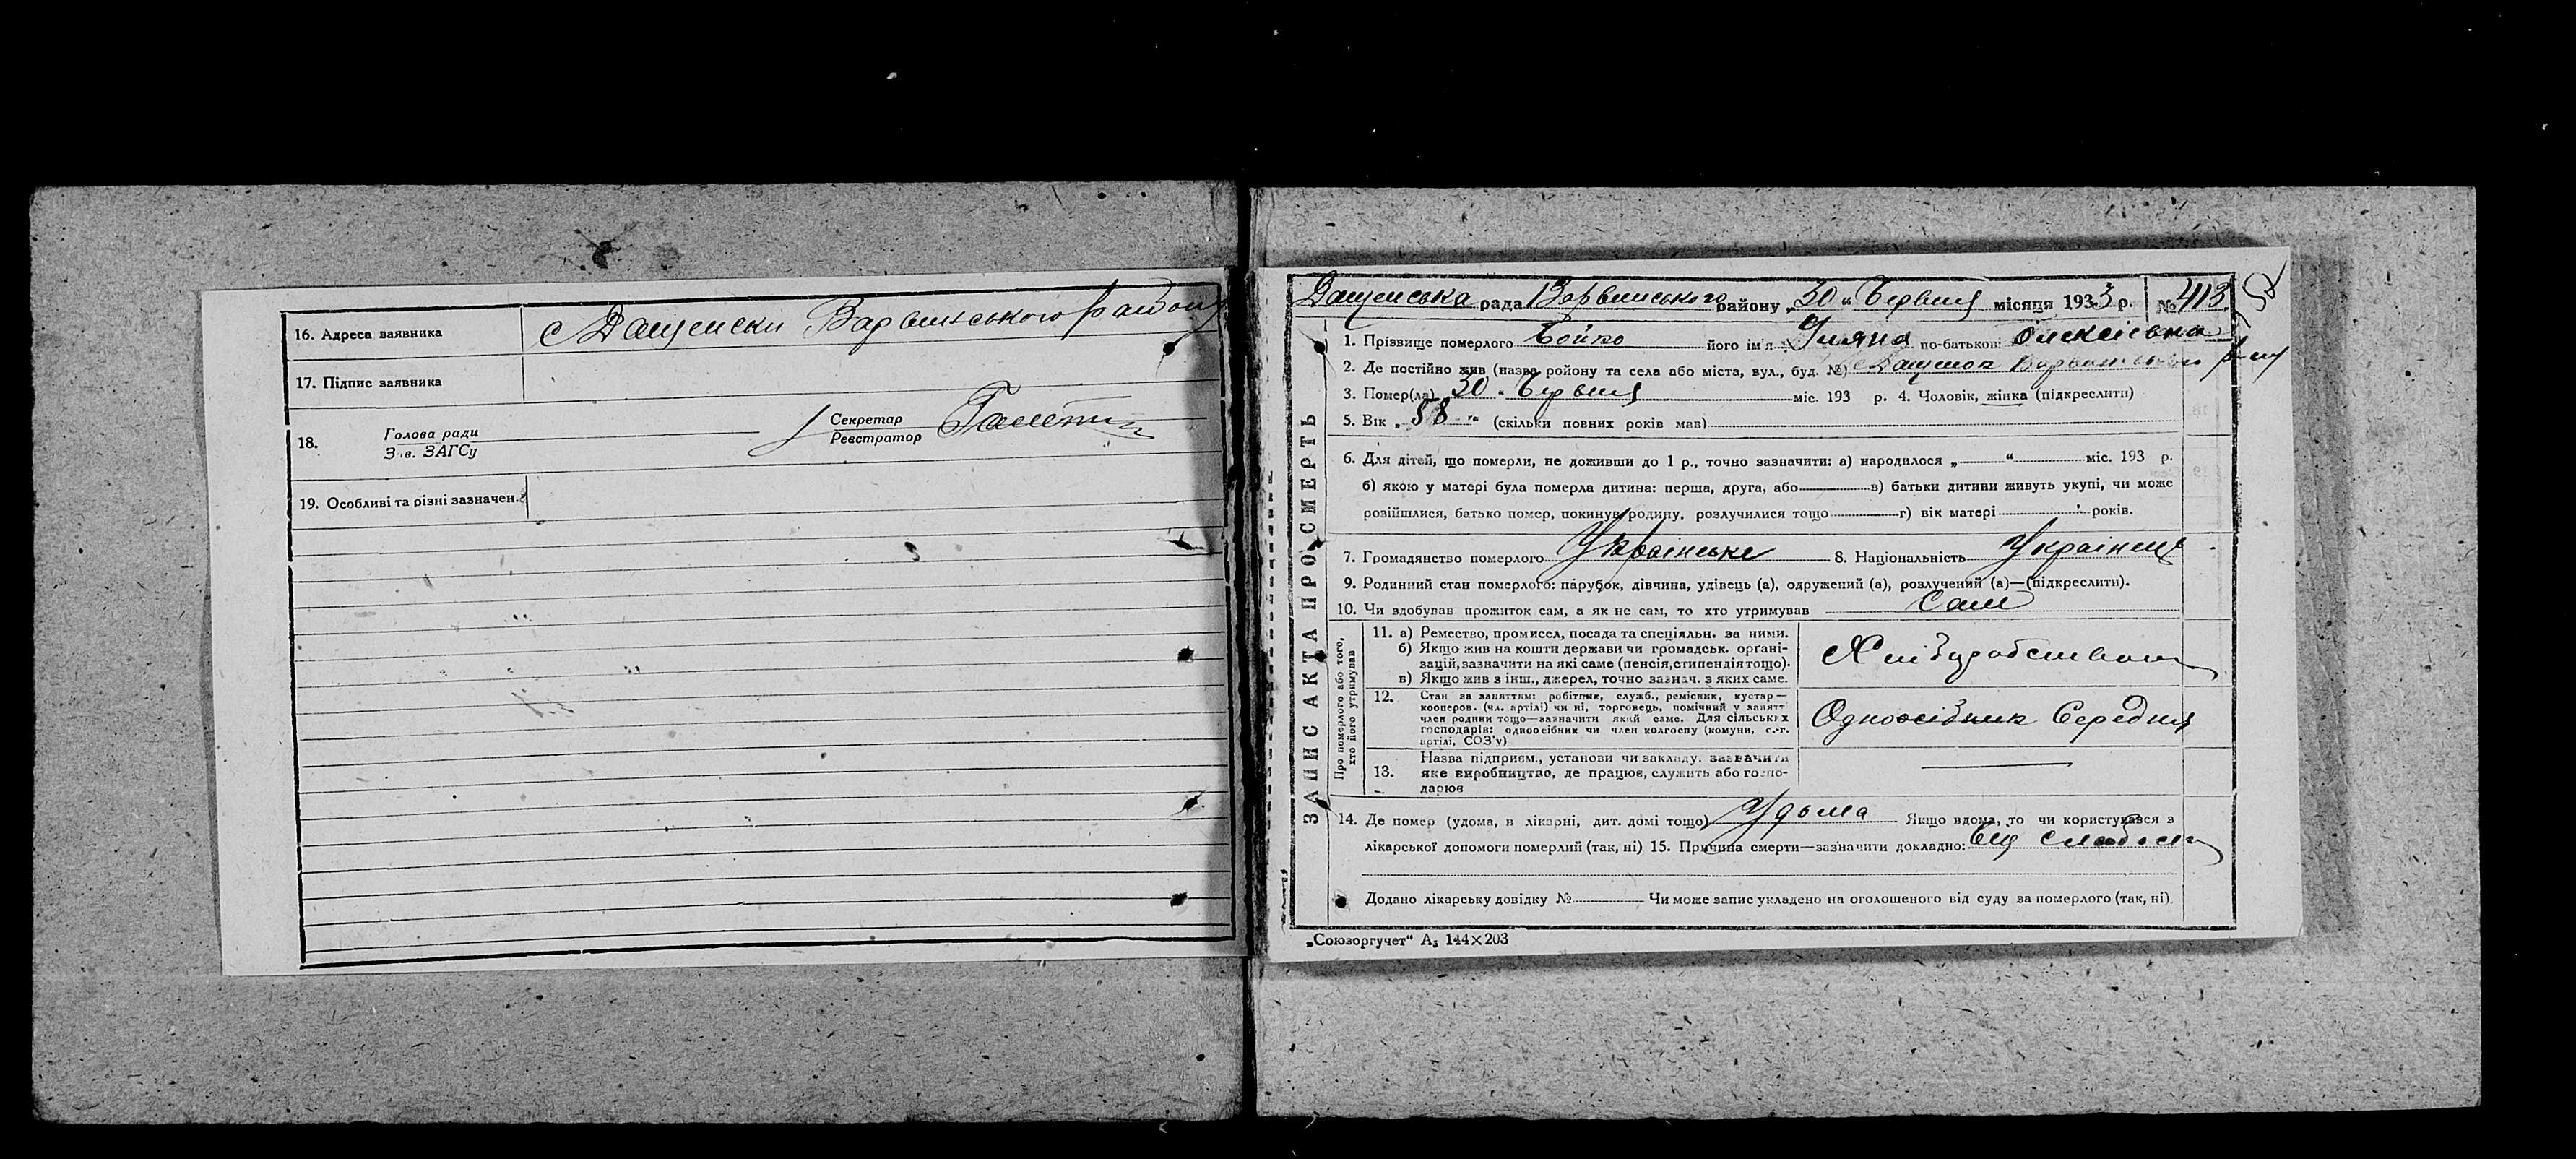 16. Адреса заявника с Дащенски Варвинського району
17. Підпис заявника
18. Голова ради Зав. ЗАГСу Секретар Реєстратор
19. Особливі та різні зазначен.
Дащенська рада Варвинського району „30“ Червня місяця 1933 р. № 413
ЗАПИС АКТА ПРО СМЕРТЬ
1. Прізвище померлого Бойко його ім'я Уляна по-батькові Олексіевна
2. Де постійно жив (назва ройону та села або міста, вул., буд. №) с Дащенок Варвинський р-ну
3. Помер(ла) „30“ Червня міс. 193 р. 4. Чоловік, жінка (підкреслити)
5. Вік „58“ (скільки повних років мав)
6. Для дітей, що померли, не доживши до 1 р., точно зазначити: а) народилося „ “ міс. 193 р.
б) якою у матері була померла дитина: перша, друга, або в) батьки дитини живуть укупі, чи може
розійшлися, батько помер, покинув родину, розлучилися тощо г) вік матері років.
7. Громадянство померлого Українське 8. Національність Українець
9. Родинний стан померлого: парубок, дівчина, удівець (а), одружений (а), розлучений (а)—(підкреслити).
10. Чи здобував прожиток сам, а як не сам, то хто утримував Сам
Про померлого або того, хто його утримував
11. а) Ремество, промисел, посада та спеціяльн. за ними.
б) Якщо жив на кошти держави чи громадськ. органі-
зацій, зазначити на які саме (пенсія, стипендія тощо).
в) Якщо жив з інш., джерел, точно зазнач. з яких саме.
Хліборобством
12. Стан за заняттям: робітник, служб., ремісник, кустар—
кооперов. (чл. артілі) чи ні, торговець, помічний у занятт
член родини тощо—зазначити який саме. Для сільських
господарів: одноосібник чи член колгоспу (комуни, с.-г.
артілі, СОЗ'у)
Одноосібник Середняк
13. Назва підприєм., установи чи закладу. зазначити
яке виробництво, де працює, служить або госпо-
дарює
14. Де помер (удома, в лікарні, дит. домі тощо) Удома Якщо вдома, то чи користувався з
лікарської допомоги померлий (так, ні) 15. Причина смерти—зазначити докладно:
Додано лікарську довідку № Чи може запис укладено на оголошеного від суду за померлого (так, ні).
„Союзоргучет“ А₅ 144×203